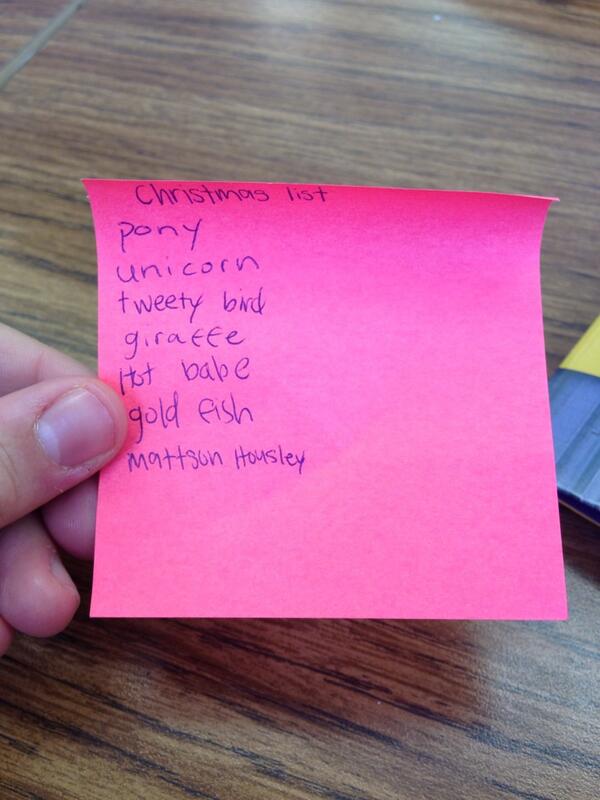 Christmas list
pony
unicorn
tweety bird
giraffe
Hot babe
gold fish
mattson Housley